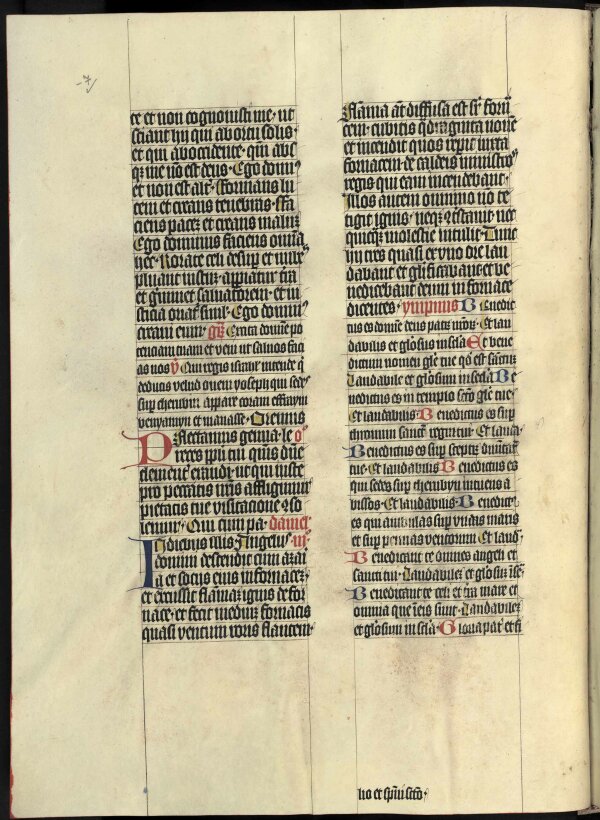 te et non cognouisti me · ut
sciant hii qui ab ortu solis ·
et qui ab occidente · qm̄ abs
qꝫ me nō est deus · Ego domiꝰ
et non est alt̄ · fformans lu
cem et creans tenebras · ffa
ciens pacē et creans malū ·
Ego dominus faciens omīa
hec · Rorate celi desup et nubes
pluant iustū · apperiatur t̄ra
et gīminet saluatorem · et iu
sticia oriat̄ simł · Ego domiꝰ
creaui eum · Excita domine po
tenciam tuam et veni ut saluos faci
as nos Qui regis israhel intende q̇
deducis velud ouem yoseph qui sedes
sup cherubin appare coram effraym
benyamyn et manasse · Oremus
flectamus genua · le
Preces ppłi tui quis dn̄e
clement̄ exaudi · ut qui iuste
pro peccatis nr̄is affligimur
pietatis tue visitacione ꝯso
lemur · Qui cum pa · daniel
In diebus illis Angelus
domini descendit cum azari
a et sociis eius in fornacē ·
et excussit flāmā ignis de for
nace · et fecit mediū fornacis
quasi ventum roris flantem ·
fflāma āt diffusa est sr̄ forna
cem · cubitis q̄draginta nouē
et incendit quos repit iuxta
fornacem de caldeis ministros
regis qui eam incendebant ·
Illos autem omnino nō te
tigit ignis · neqꝫ ꝯtristauit nec
quicqꝫ molestie intulit · Tunc
hii tres quasi ex vno ore lau
dabant et gl̄ificabant et be
nedicebant deum in fornace
dicentes · ympnus Benedic
tus es domīe deus patrꝫ nr̄orꝫ · Et lau
dabilis et gl̄osus in sc̄la Et bene
dictum nomen gl̄e tue qd̄ est sanctū
laudabile et gl̄osum in sec̄la Be
nedictus es in templo sc̄o gl̄e tue ·
Et laudabilis Benedictus es sup
thronum sanctū regni tui · Et lauda
Benedictus es sup sceptrū diuitatꝭ
tue · Et laudabilis Benedictus es
qui sedes sup cherubyn intuens a
bissos · Et laudabilis · Benedictꝰ
es qui ambulas sup vndas maris
et sup pennas ventorum Et laud ·
Benedicant te omnes angeli et
sancti tui · Laudabilē et gl̄osū
Benedicant te celi et t̄ra mare et
omnia que ī eis sunt · Laudabilē
et gl̄osum in sec̄la · Gloria pat̄ et fi
lio et spūi sc̄o ·